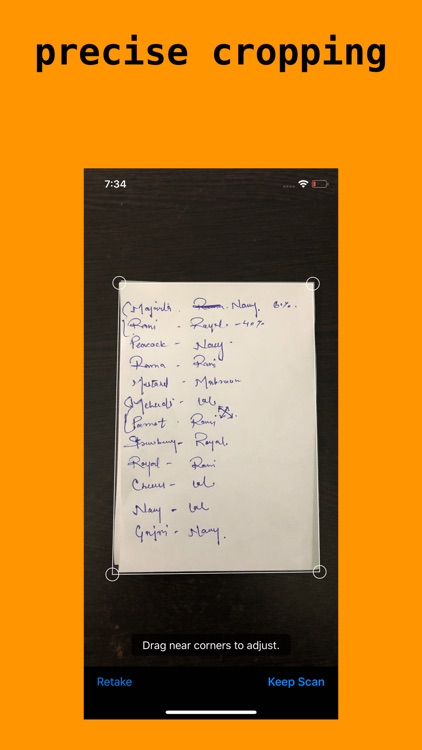 precise cropping
7:34
Navy. 60%.
Rani - Royal. - 40%
Peacock - Navy -
Rama - Rani
Mustard - Mahroon
Mehendi - Lal
Parrot - Rani
Strawberry - Royal
Royal - Rani
Cream - Lal
Navy - Lal
Gajri - Navy.
Drag near corners to adjust.
Retake
Keep Scan